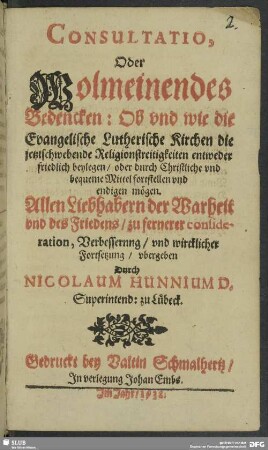 2.
CONSULTATIO,
Oder
Wolmeinendes
Bedencken: Ob vnd wie die
Evangelische Lutherische Kirchen die
jetztschwebende Religionsstreitigkeiten entweder
friedlich beylegen / oder durch Christliche vnd
bequeme Mittel fortstellen vnd
endigen mögen.
Allen Liebhabern der Warheit
vnd des Friedens / zu fernerer conside-
ration, Verbesserung / vnd wircklicher
Fortsetzung / vbergeben
Durch
NICOLAUM HUNNIUM D.
Superintend: zu Lübeck.
Gedruckt bey Valtin Schmalhertz /
In verlegung Johan Embs.
Im Jahr / 1632.
SLUB
DFG